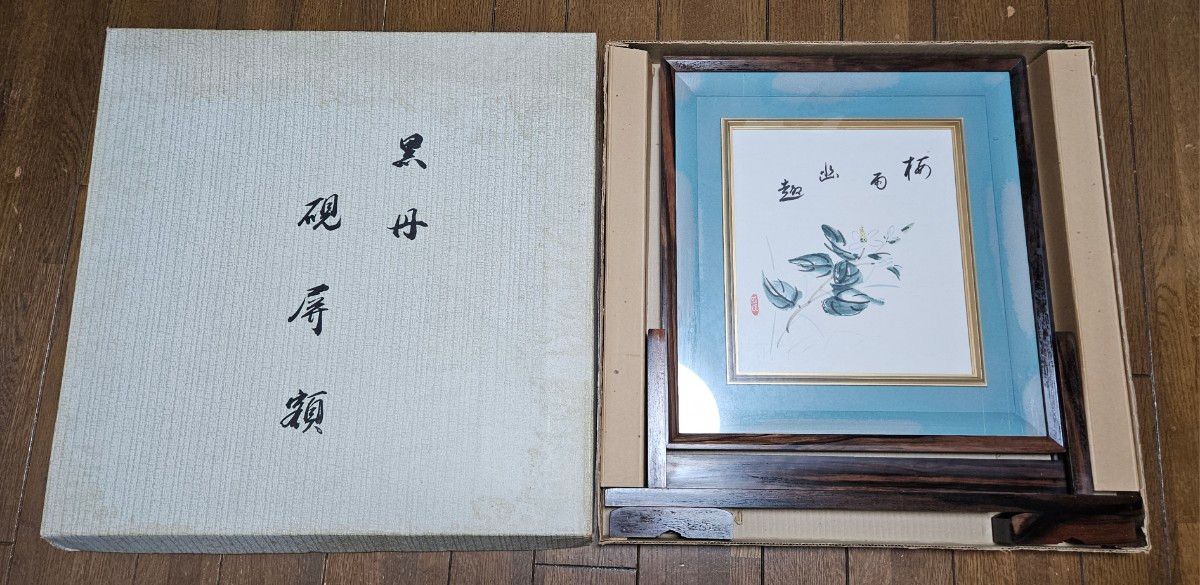 黒丹
硯屏額
梅雨幽趣